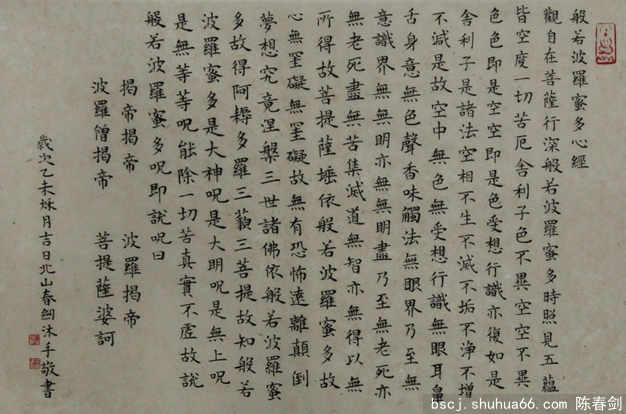 般若波羅蜜多心經
觀自在菩薩行深般若波羅蜜多時照見五蘊
皆空度一切苦厄舍利子色不異空空不異
色色即是空空即是色受想行識亦復如是
舍利子是諸法空相不生不滅不垢不净不增
不減是故空中無色無受想行識無眼耳鼻
舌身意無色聲香味觸法無眼界乃至無
意識界無無明亦無無明盡乃至無老死亦
無老死盡無苦集滅道無智亦無得以無
所得故菩提薩埵依般若波羅蜜多故
心無罣礙無罣礙故無有恐怖遠離顛倒
夢想究竟涅槃三世諸佛依般若波羅蜜
多故得阿耨多羅三藐三菩提故知般若
波羅蜜多是大神呪是大明呪是無上呪
是無等等呪能除一切苦真實不虛故說
般若波羅蜜多呪即說呪曰
揭帝揭帝 波羅揭帝
波羅僧揭帝 菩提薩婆訶
歲次乙未秌月吉日北山春劍沐手敬書
bscj.shuhua66.com 陈春剑